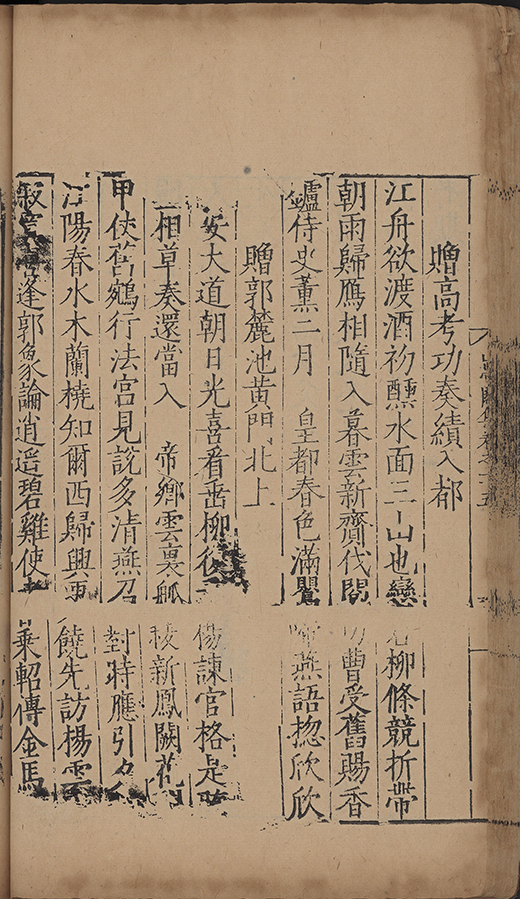 贈高考功奏績入都
江舟欲渡酒初醺水面三山也戀君柳條競折帶
朝雨歸鴈相隨入暮雲新齎伐閱功曹受舊賜香
爐侍史薰二月 皇都春色滿鸎啼燕語揔欣欣
贈郭麓池黃門北上
安大道朝日光喜看垂柳後楊諫官格是
相草奏還當入 帝鄉雲裏舳稜新鳳闕花
甲伏舊鵷行法宮見說多清燕召對時應引
江陽春水木蘭橈知爾西歸興饒先訪楊雲
寂逢郭象論逍遥碧雞使乗軺傳金馬